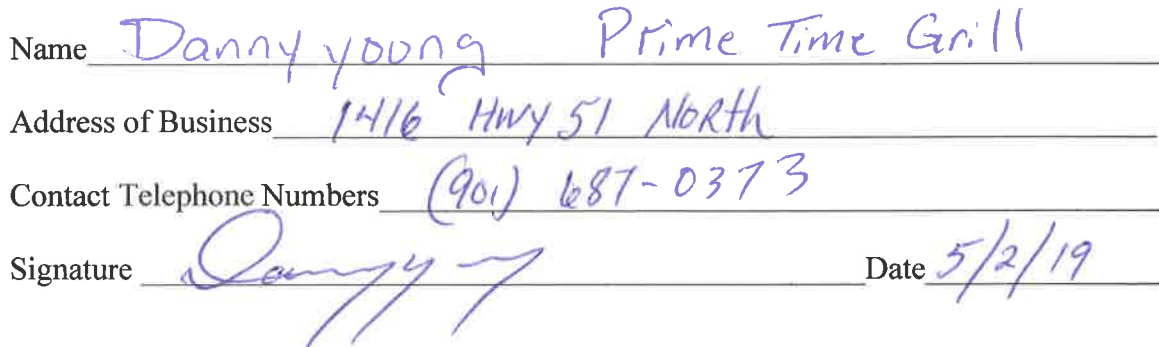 Name Danny young Prime Time Grill
Address of Business 1416 HWY 51 NORth
Contact Telephone Numbers (901) 687-0373
Signature Danny y Date 5/2/19